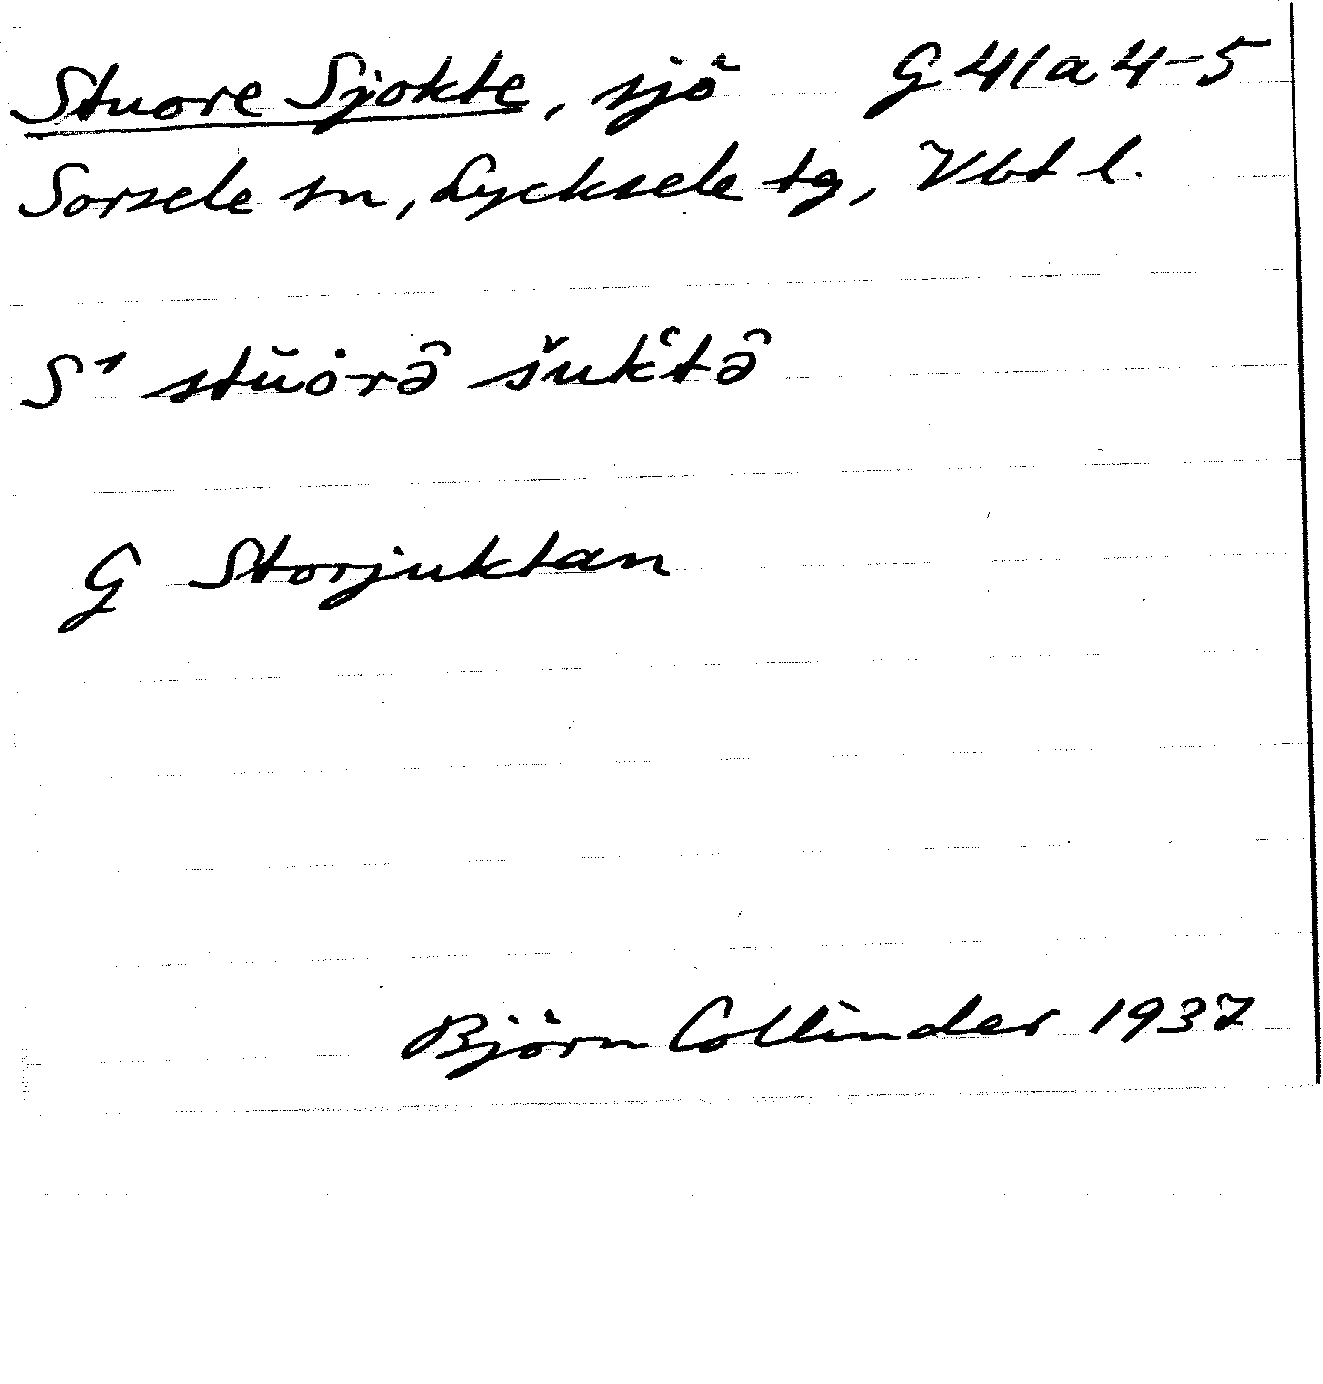 Stuore Sjokte, sjö G 41a 4-5
Sorsele sn, Lycksele tg, Vbt l.
S1 stŭȯrə̑ šuk‘tə̑
G Storjuktan
Björn Collinder 1937